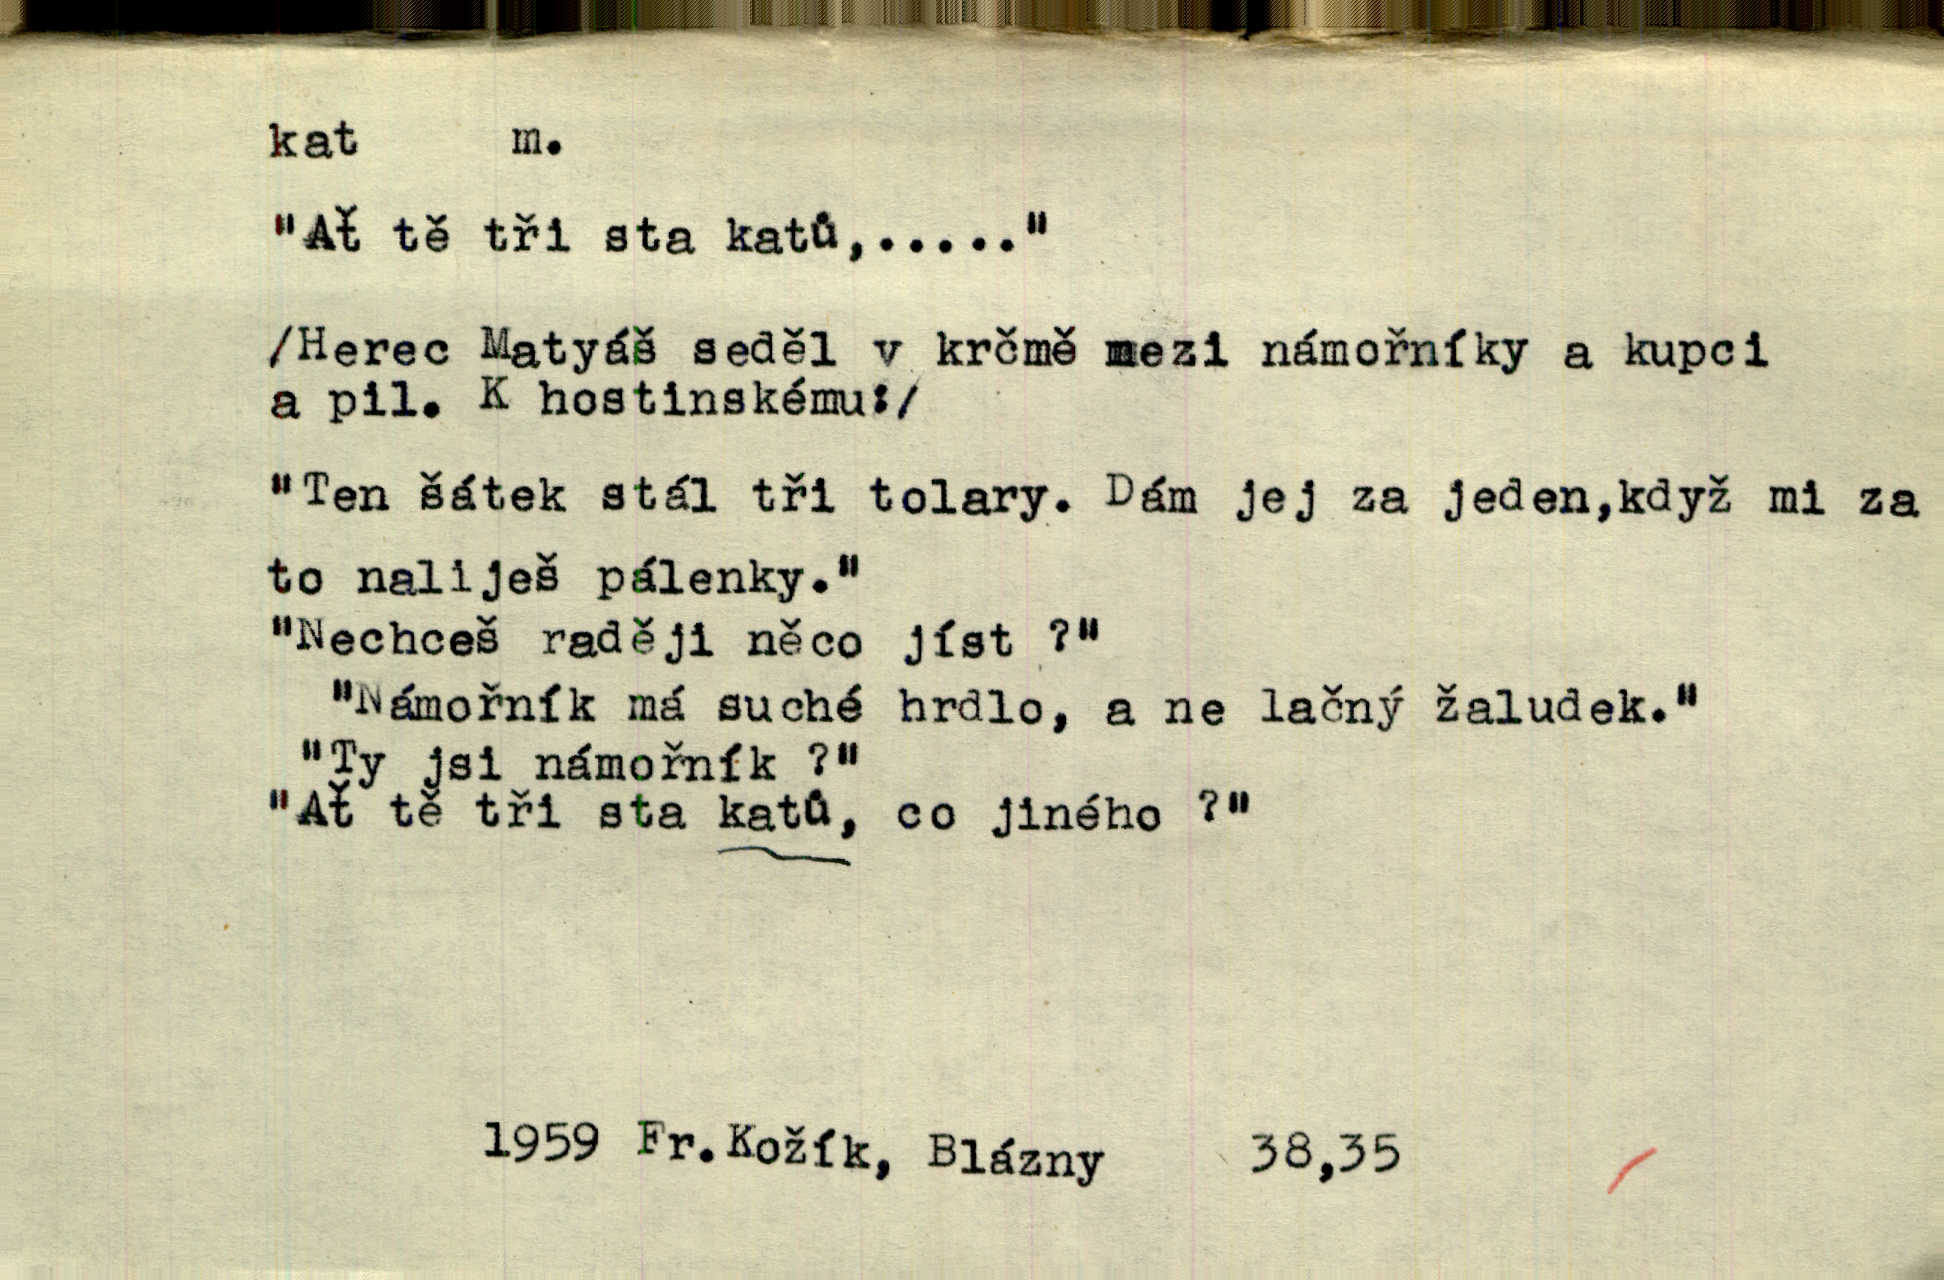 kat m.
"Ať tě tři sta katů,....."
/Herec Matyáš seděl v krčmě mezi námořníky a kupci
a pil. K hostinskému:/
"Ten šátek stál tři tolary. Dám jej za jeden,když mi za
to naliješ pálenky."
"Nechceš raději něco jíst ?"
"Námořník má suché hrdlo, a ne lačný žaludek."
"Ty jsi námořník ?"
"Ať tě tři sta katů, co jiného ?"
1959 Fr.Kožík, Blázny 38,35